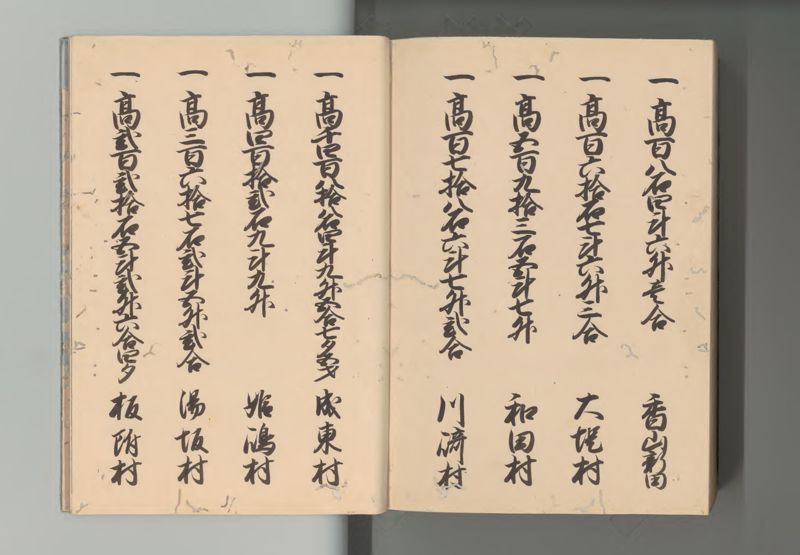 一 高百八石四斗六升壱合 香山新田
一 高百六拾石七斗六升三合 大堤村
一 高五百九拾三石五斗七升 和田村
一 高百七拾八石六斗七升弐合 川崎村
一 高千四百八拾八石四斗九升五合七夕五才 成東村
一 高四百拾弐石九斗九升 姫嶋村
一 高三百六拾七石弐斗五升弐合 湯坂村
一 高弐百弐拾石五斗弐升六合四夕 板附村